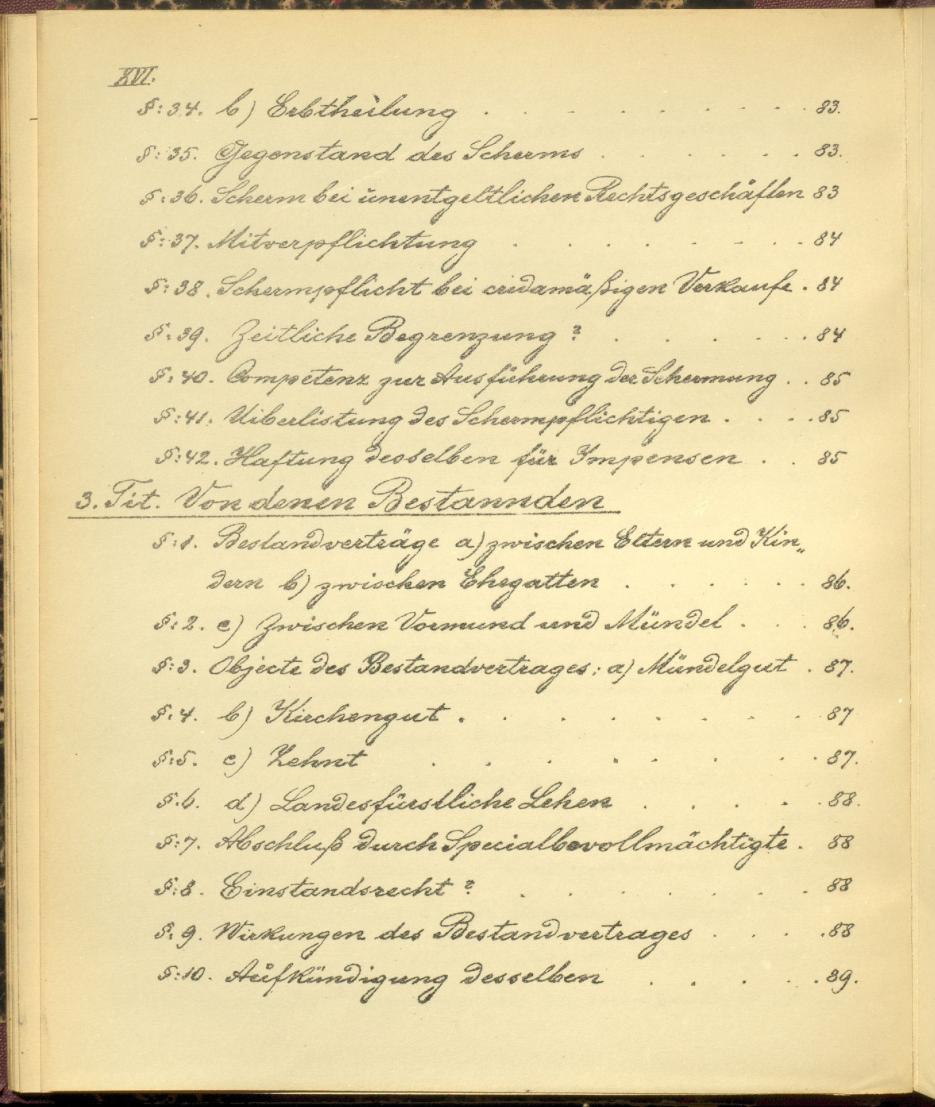 XVI.
§: 34. b) Erbtheilung . . . . . . . . . . 83.
§: 35. Gegenstand des Scherms . . . . . . 83.
§: 36. Scherm bei unentgeltlichen Rechtsgeschäften 83
§: 37. Mitverpflichtung . . . . . . . 84
§: 38. Schermpflicht bei cridamäßigen Verkaufe . 84
§: 39. Zeitliche Begrenzung ? . . . . . 84
§: 40. Competenz zur Ausführung der Schermung . . 85
§: 41. Uiberlistung des Schermpflichtigen . . . . 85
§: 42. Haftung desselben für Impensen . . 85
3. Tit. Von denen Bestannden
§: 1. Bestandverträge a) zwischen Eltern und Kin„
dern b) zwischen Ehegatten . . . . . . 86.
§: 2. c) Zwischen Vormund und Mündel . . . 86.
§: 3. Objecte des Bestandvertrages: a) Mündelgut . 87.
§: 4. b) Kirchengut . . . . . . . . . 87
§: 5. c) Zehnt . . . . . . . . 87.
§: 6. d) Landesfürstliche Lehen . . . . . 88.
§: 7. Abschluß durch Specialbevollmächtigte . 88
§: 8. Einstandsrecht ? . . . . . . . 88
§: 9. Wirkungen des Bestandvertrages . . . . 88
§: 10. Aufkündigung desselben . . . . . 89.